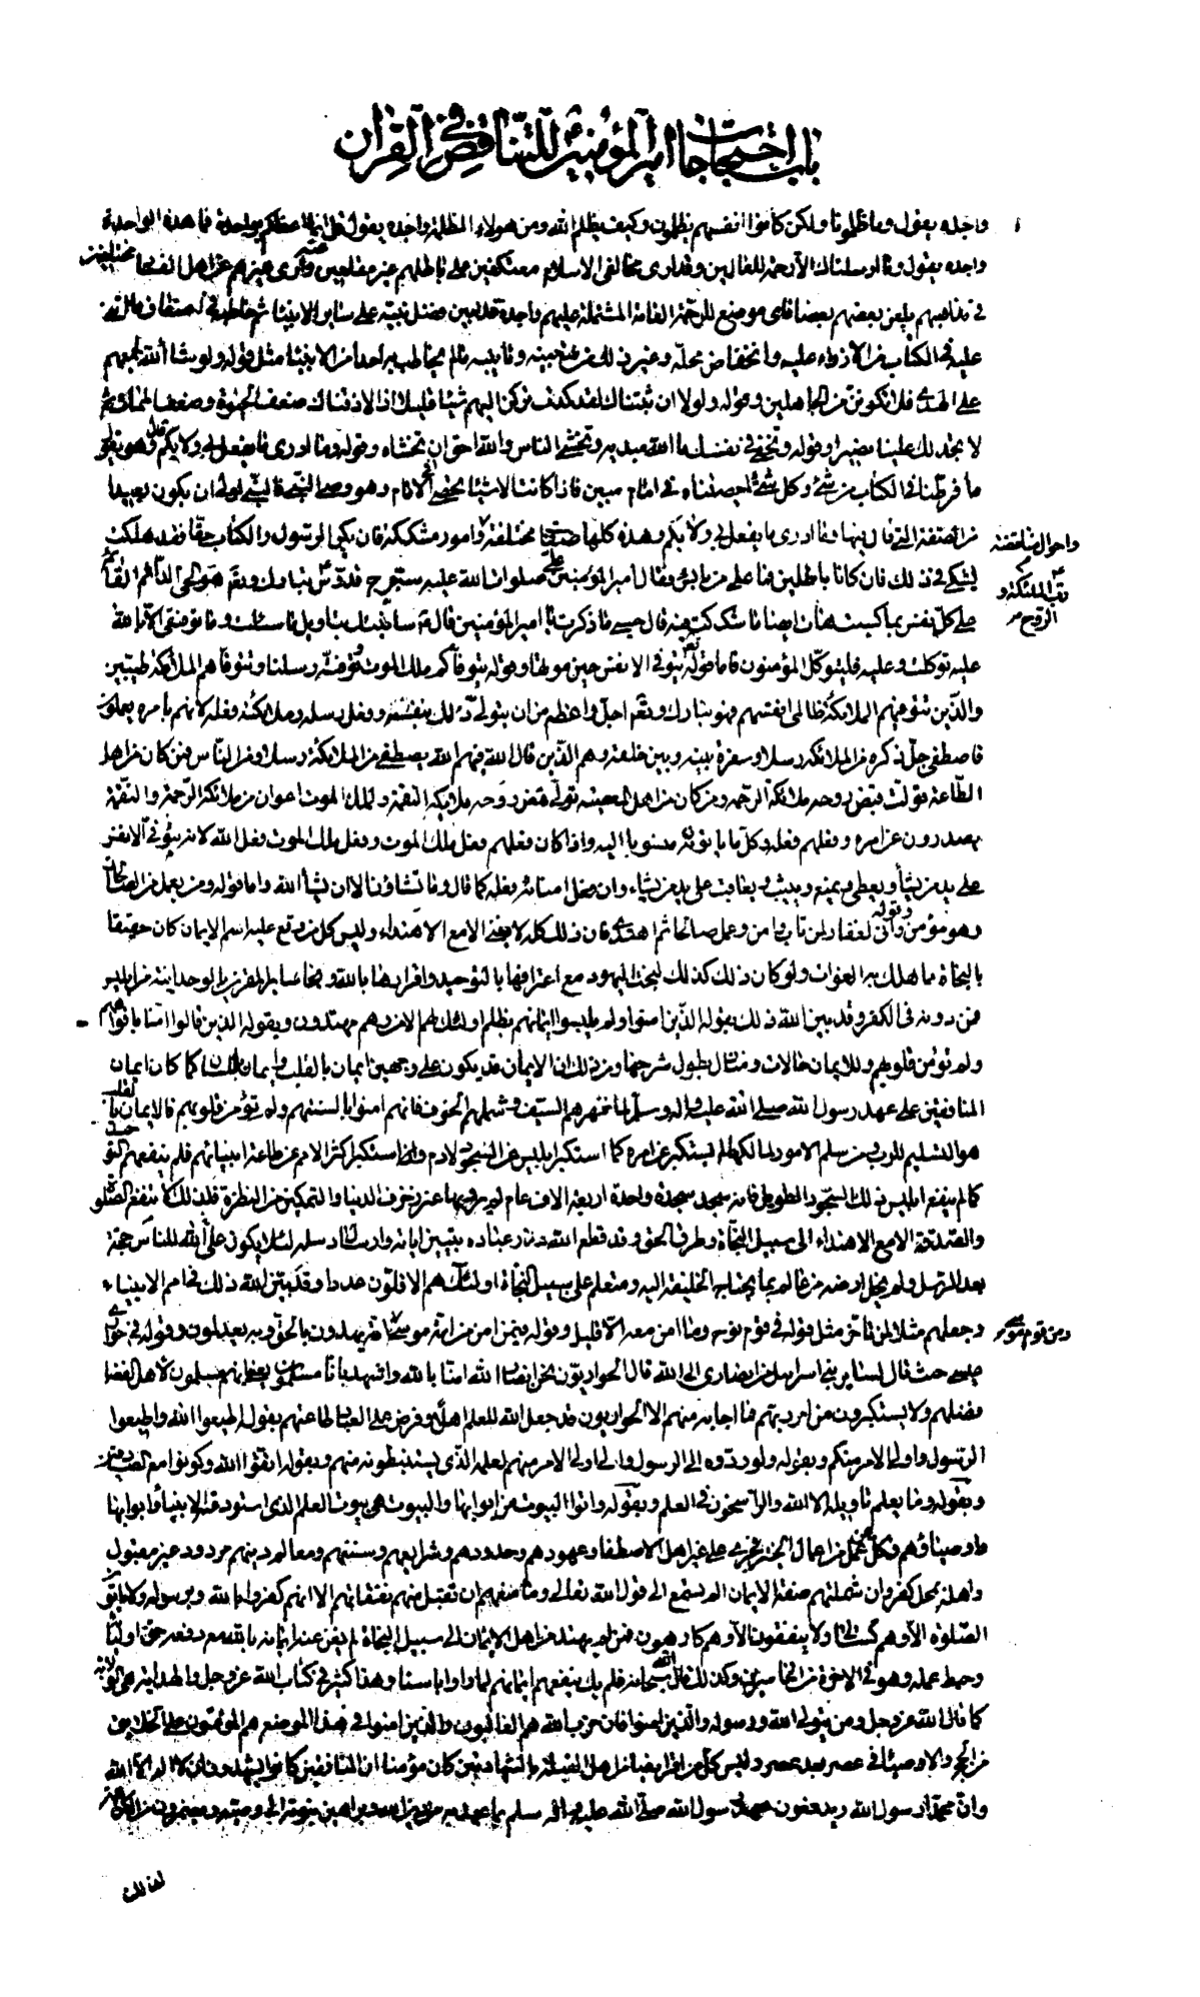 باب احتجاجات امير المؤمنين للتناقض في القرآن
واجده يقول وما ظلمونا ولكن كانوا انفسهم يظلمون وكيف يظلم الله ومن هولاء الظلمة واجده يقول قل انما اعظكم بواحدة فما هذه الواحدة
واجده يقول وما ارسلناك الا رحمة للعالمين وقد ارى مخالفي الاسلام معتكفين على باطلهم غير مقلعين عنه وارى غيرهم من اهل الفساد مختلفين
في مذاهبهم يلعن بعضهم بعضا فاى موضع للرحمة العامة المشتملة عليهم واجده قد بين فضل نبيه على ساير الانبياء ثم خاطبه في
عليه في الكتاب من الازراء عليه وانخفاض محله وغير ذلك من تهجينه وتأنيبه ما لم يخاطب به احدا من الانبياء مثل قوله ولو شاء الله لجمعهم
على الهدى فلا تكونن من الجاهلين وقوله ولولا ان ثبتناك لقد كدت تركن اليهم شيئا قليلا اذا لاذقناك ضعف الحيوة وضعف الممات ثم
لا تجد لك علينا نصيرا وقوله وتخفى في نفسك ما الله مبديه وتخشى الناس والله احق ان تخشاه وقوله وما ادرى ما يفعل بى ولا بكم وهو يقول
ما فرطنا في الكتاب من شئ وكل شئ احصيناه في امام مبين فاذا كانت الاشياء تحصى في الامام وهو وصى النبى فالنبى اولى ان يكون بعيدا
من الصفة التى قال فيها وما ادرى ما يفعل بى ولا بكم وهذه كلها صفات مختلفة وامور مشكلة فان يكن الرسول والكتاب حقا فقد هلكت
واحوال متناقضة
لشكى في ذلك فان كانا باطلين فما على من باس فقال امير المؤمنين صلوات الله عليه سبوح قدوس تبارك وتعالى هو الحى الدائم القائم
رب الملائكة و
الروح
على كل نفس بما كسبت هات ايضا ما شككت فيه قال حسبى ما ذكرت يا امير المؤمنين قال ع سانبئك بتاويل ما سئلت وما توفيقى الا بالله
عليه توكلت وعليه فليتوكل المؤمنون فاما قوله الله يتوفى الانفس حين موتها وقوله يتوفاكم ملك الموت وتوفته رسلنا وتتوفاهم الملائكة طيبين
والذين تتوفيهم الملائكة ظالمى انفسهم فهو تبارك وتعالى اجل واعظم من ان يتولى ذلك بنفسه وفعل رسله وملائكته فعله لانهم بامره يعملون
فاصطفى جل ذكره من الملائكة رسلا وسفرة بينه وبين خلقه وهم الذين قال الله فيهم الله يصطفى من الملائكة رسلا ومن الناس فمن كان من اهل
الطاعة تولت قبض روحه ملائكة الرحمة ومن كان من اهل المعصية تولى قبض روحه ملائكة النقمة ولملك الموت اعوان من ملائكة الرحمة والنقمة
يصدرون عن امره وفعلهم فعله وكل ما ياتونه منسوب اليه واذا كان فعلهم فعل ملك الموت وفعل ملك الموت فعل الله لانه يتوفى الانفس
على يد من يشاء ويعطى ويمنع ويثيب ويعاقب على يد من يشاء وان فعل امنائه فعله كما قال وما تشاؤن الا ان يشاء الله واما قوله ومن يعمل من الصالحات
وهو مؤمن وقوله وانى لغفار لمن تاب وامن وعمل صالحا ثم اهتدى فان ذلك كله لا يغنى الا مع الاهتداء وليس كل من وقع عليه اسم الايمان كان حقيقا
بالنجاة مما هلك به الغواة ولو كان ذلك كذلك لنجت اليهود مع اعترافها بالتوحيد واقرارها بالله ونجا سائر المقرين بالوحدانية من ابليس
فمن دونه في الكفر وقد بين الله ذلك بقوله الذين امنوا ولم يلبسوا ايمانهم بظلم اولئك لهم الامن وهم مهتدون وبقوله الذين قالوا امنا بافواههم
ولم تؤمن قلوبهم وللايمان حالات ومنازل يطول شرحها ومن ذلك ان الايمان قد يكون على وجهين ايمان بالقلب وايمان باللسان كما كان ايمان
المنافقين على عهد رسول الله صلى الله عليه واله وسلم لما قهرهم السيف وشملهم الخوف فانهم امنوا بالسنتهم ولم تؤمن قلوبهم فالايمان بالقلب
هو التسليم للرب ومن سلم الامور لمالكها لم يستكبر عن امره كما استكبر ابليس عن السجود لادم واستكبر اكثر الامم عن طاعة انبيائهم فلم ينفعهم التوحيد
كما لم ينفع ابليس ذلك السجود الطويل فانه سجد سجدة واحدة اربعة الاف عام لم يرد بها غير زخرف الدنيا والتمكين من النظرة فلذلك لا تنفع الصلوة
والصدقة الا مع الاهتداء الى سبيل النجاة وطرق الحق وقد قطع الله عذر عباده بتبيين اياته وارسال رسله لئلا يكون على الله للناس حجة
بعد الرسل ولم يخل ارضه من عالم بما يحتاج الخليقة اليه ومتعلم على سبيل النجاة اولئك هم الاقلون عددا وقد بين الله ذلك في امم الانبياء
وجعلهم مثلا لمن تاخر مثل قوله في قوم نوح وما امن معه الا قليل وقوله فيمن امن من امة موسى امة يهدون بالحق وبه يعدلون وقوله في حوارى
ومن قوم موسى
عيسى حيث قال لسائر بنى اسرائيل من انصارى الى الله قال الحواريون نحن انصار الله امنا بالله واشهد بانا مسلمون يعنى انهم يسلمون لاهل الفضل
فضلهم ولا يستكبرون عن امر ربهم فما اجابه منهم الا الحواريون وقد جعل الله للعلم اهلا وفرض على العباد طاعتهم بقوله اطيعوا الله واطيعوا
الرسول واولى الامر منكم وبقوله ولو ردوه الى الرسول والى اولى الامر منهم لعلمه الذى يستنبطونه منهم وبقوله اتقوا الله وكونوا مع الصادقين
وبقوله وما يعلم تاويله الا الله والراسخون في العلم وبقوله واتوا البيوت من ابوابها والبيوت هى بيوت العلم الذى استودعته الانبياء وابوابها
اوصياؤهم فكل عمل من اعمال الخير يجرى على غير اهل الاصطفاء وعهودهم وحدودهم وشرايعهم وسننهم ومعالم دينهم مردود غير مقبول
واهله بمحل كفر وان شملتهم صفة الايمان الم تسمع الى قول الله تعالى وما منعهم ان تقبل منهم نفقاتهم الا انهم كفروا بالله وبرسوله ولا ياتون
الصلوة الا وهم كسالى ولا ينفقون الا وهم كارهون فمن لم يهتد من اهل الايمان الى سبيل النجاة لم يغن عنه ايمانه بالله مع دفعه حق اوليائه
وحبط عمله وهو في الاخرة من الخاسرين وكذلك قال الله سبحانه فلم يك ينفعهم ايمانهم لما راوا باسنا وهذا كثير في كتاب الله عز وجل والهداية هى الولاية
كما قال الله عز وجل ومن يتول الله ورسوله والذين امنوا فان حزب الله هم الغالبون والذين امنوا في هذا الموضع هم المؤتمنون على الخلايق
من الحجج والاوصياء في عصر بعد عصر وليس كل من اقر ايضا من اهل القبلة بالشهادتين كان مؤمنا ان المنافقين كانوا يشهدون ان لا اله الا الله
وان محمدا رسول الله ويدفعون عهد رسول الله صلى الله عليه واله وسلم بما عهد به من دين الله وبراهين نبوته الى وصيه ويضمرون من